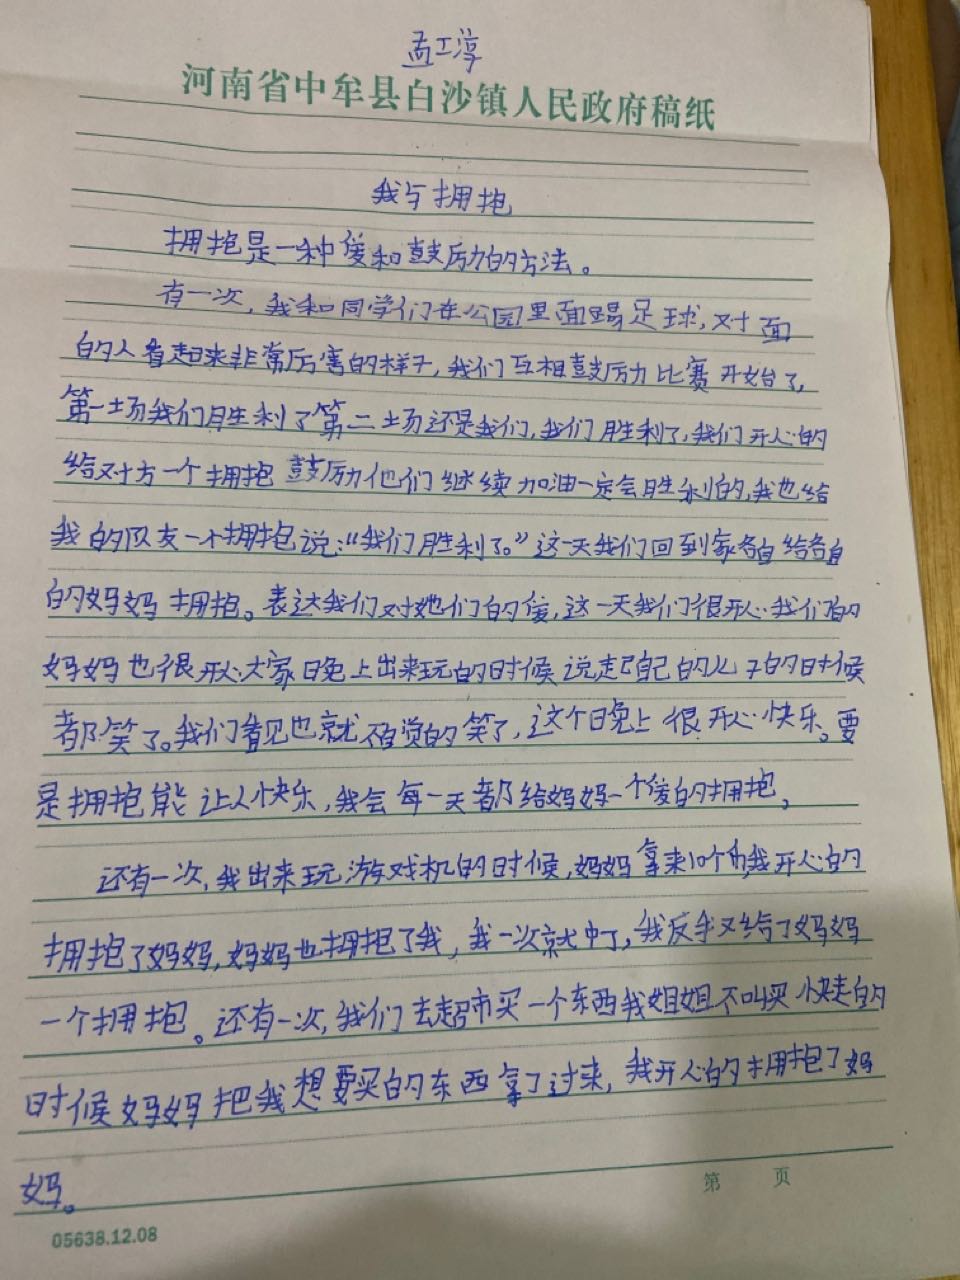 孟工淳
河南省中牟县白沙镇人民政府稿纸
我与拥抱
拥抱是一种爱和鼓励的方法。
有一次,我和同学们在公园里面踢足球,对面
的人看起来非常厉害的样子,我们互相鼓励比赛开始了,
第一场我们胜利了第二场还是我们,我们胜利了,我们开心的
给对方一个拥抱鼓励他们继续加油一定会胜利的,我也给
我的队友一个拥抱说:“我们胜利了。”这一天我们回到家各自给各自
的妈妈拥抱。表达我们对她们的爱,这一天我们很开心我们的
妈妈也很开心大家晚上出来玩的时候说起自己的儿子的时候
都笑了。我们看见也就不自觉的笑了,这个晚上很开心快乐。要
是拥抱能让人快乐,我会每一天都给妈妈一个爱的拥抱,
还有一次,我出来玩游戏机的时候,妈妈拿来10个币,我开心的
拥抱了妈妈,妈妈也拥抱了我,我一次就中了,我反手又给了妈妈
一个拥抱。还有一次,我们去超市买一个东西我姐姐不叫买快走的
时候妈妈把我想要买的东西拿了过来,我开心的拥抱了妈
妈。
第 页
05638.12.08